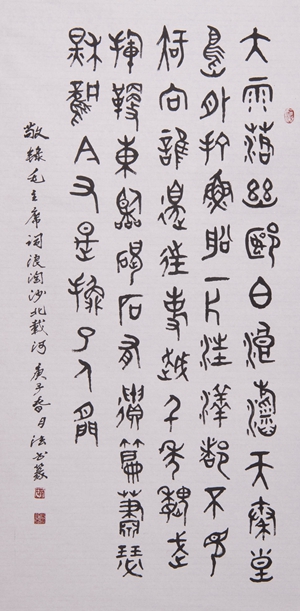 大雨落幽郾白浪滔天秦皇
島外打魚船一片汪洋都不見
知向誰邊往事越千年魏武
揮鞭東臨碣石有遺篇蕭瑟
秋風今又是換了人間
敬録毛主席词浪淘沙北戴河 庚子春月